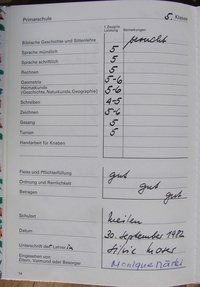 Primarschule 5. Klasse
1. Zeugnis
Leistung Bemerkungen
Biblische Geschichte und Sittenlehre besucht
Sprache mündlich 5
Sprache schriftlich 5
Rechnen 5
Geometrie 5-6
Heimatkunde
(Geschichte, Naturkunde, Geographie) 5-6
Schreiben 4-5
Zeichnen 5-6
Gesang 5
Turnen 5
Handarbeit für Knaben
Fleiss und Pflichterfüllung gut
Ordnung und Reinlichkeit gut
Betragen gut
Schulort Meilen
Datum 30. September 1982
Unterschrift des Lehrers Silvia Moser
Eingesehen von
Eltern, Vormund oder Besorger Monique
14